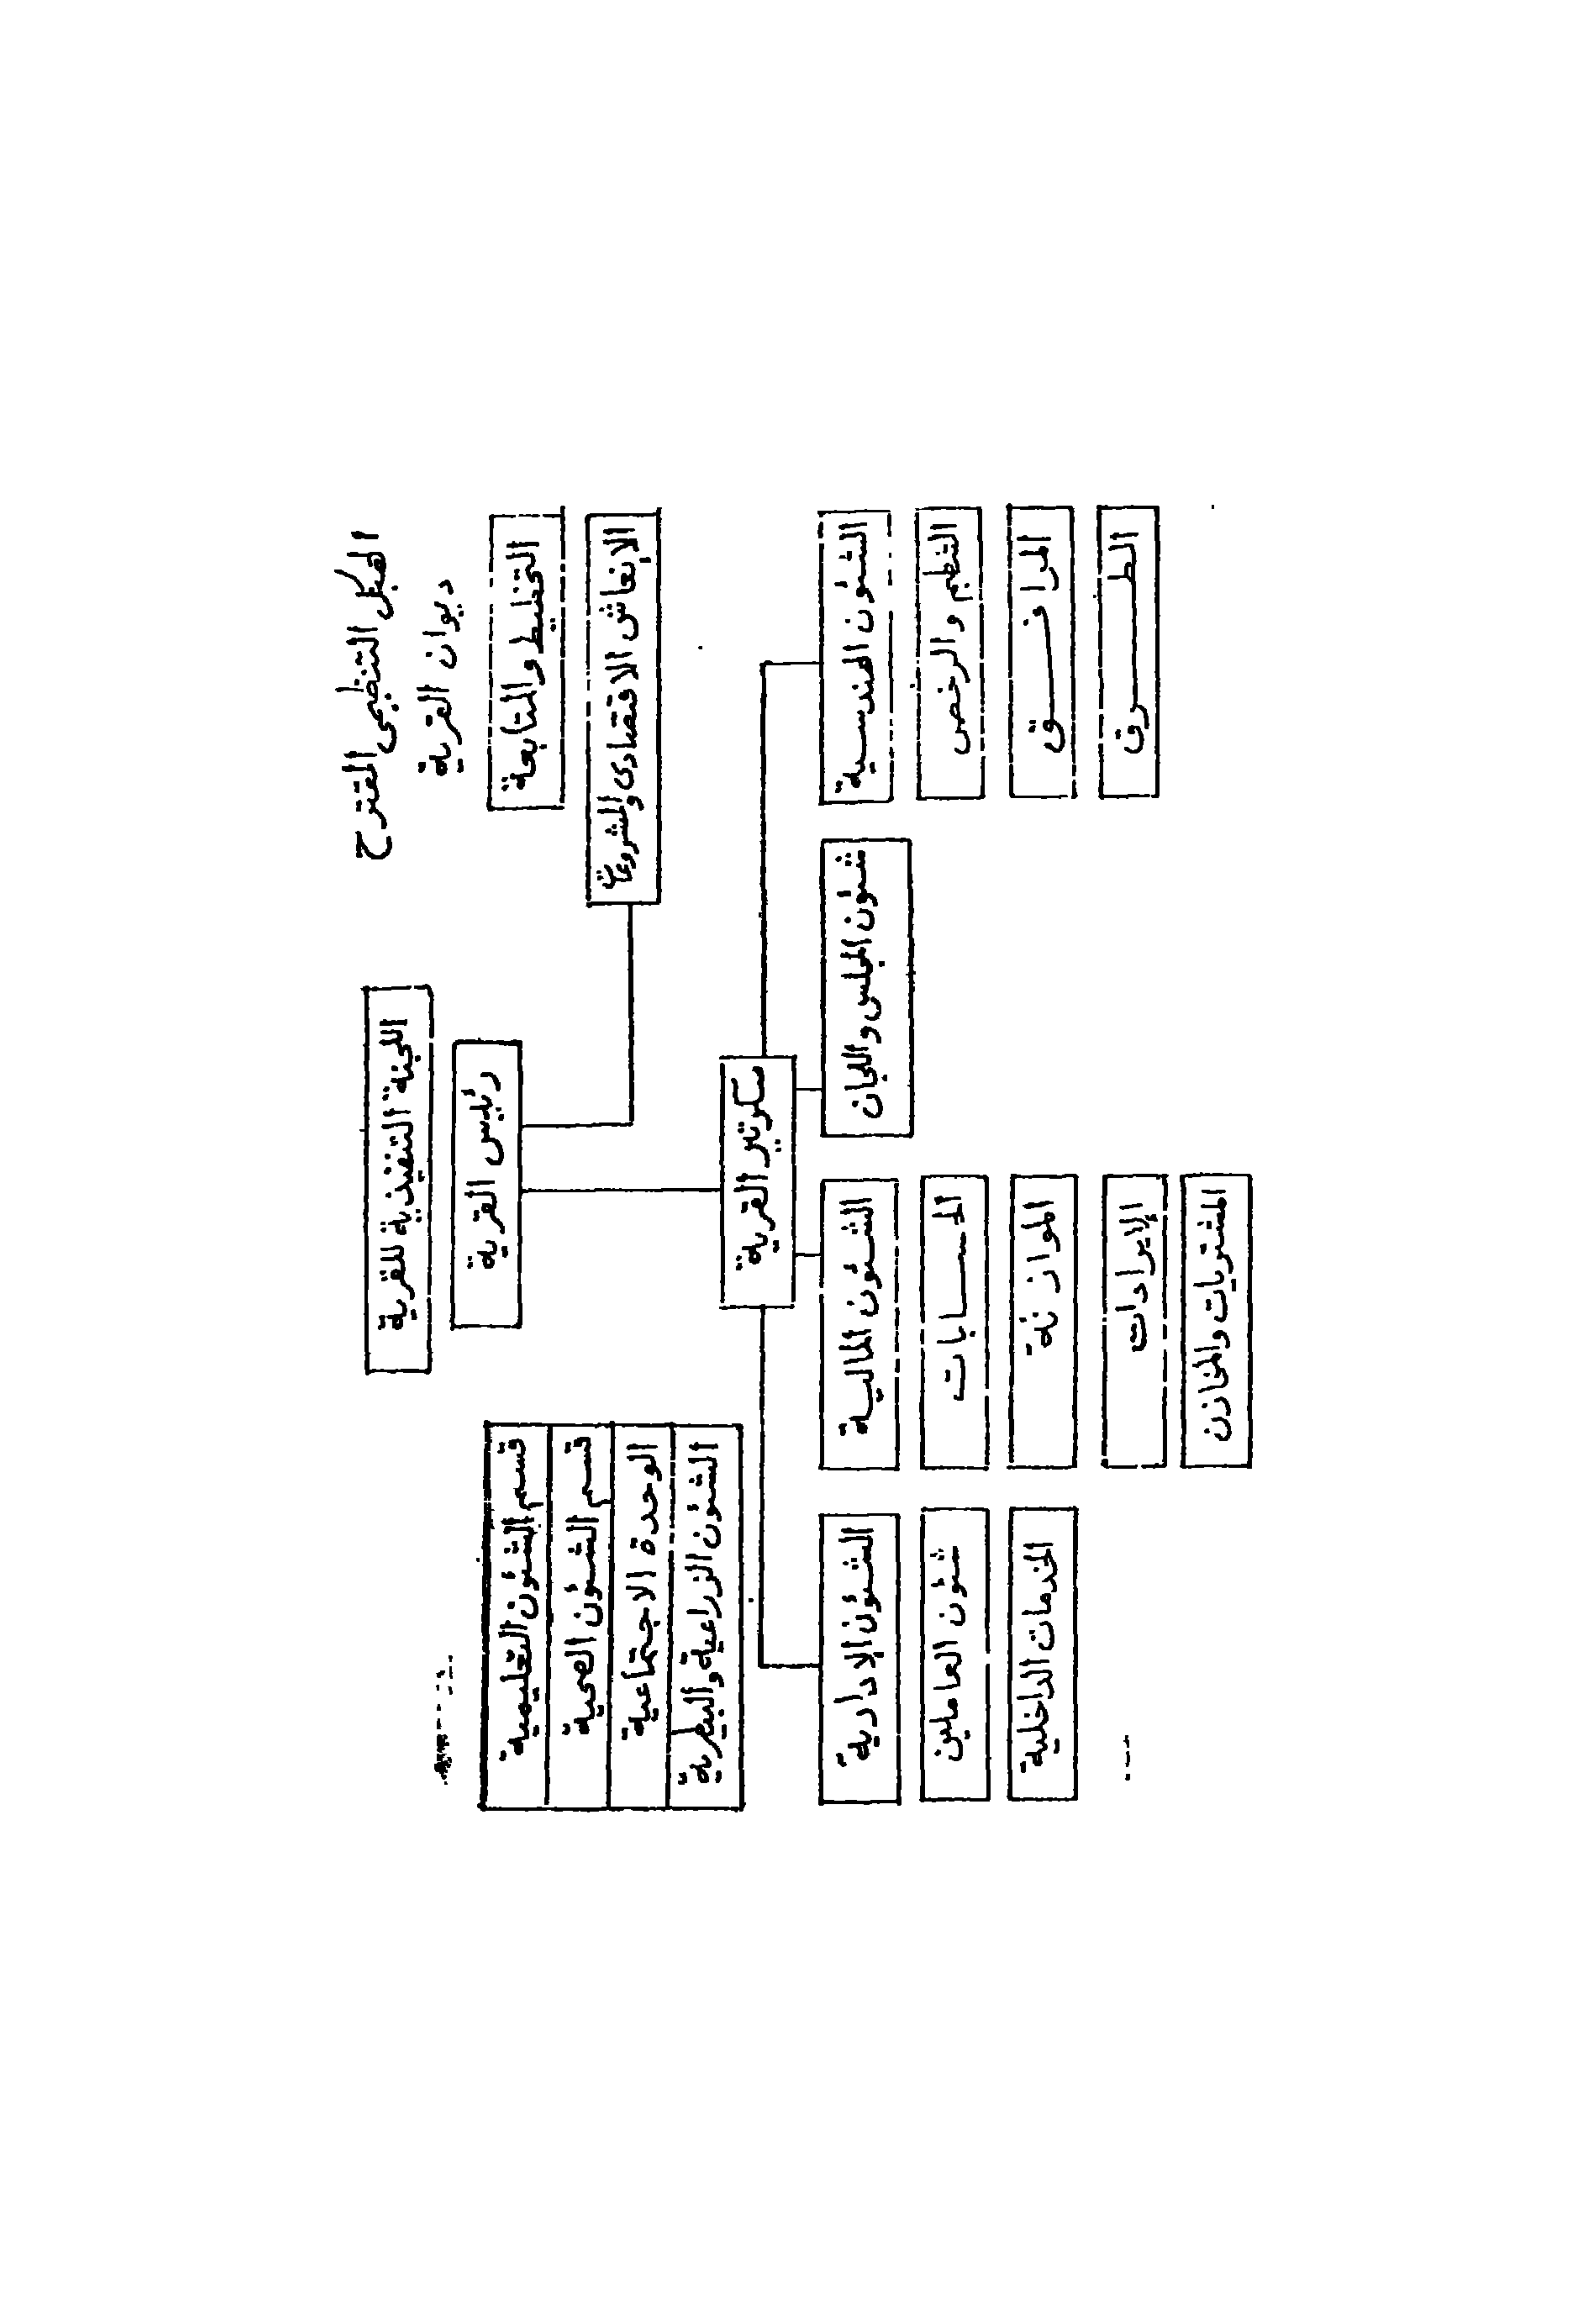 الهيكل التنظيمى المقترح
ديوان القرية
اللجنة التنفيذية للقرية
رئيس القرية
التخطيط والمتابعة
الإنعاش الاقتصادى والمشروعات
قسم الشئون التعليمية
قسم الشئون الصحية
الوحدة الاجتماعية
الشئون الزراعية والبيطرية
سكرتير القرية
الشئون الهندسية
التنظيم والرخص
المرافق
الطرق
شئون المجلس واللجان
الشئون المالية
الحسابات
الموازنة
الإيرادات
المشتريات والمخازن
الشئون الإدارية
شئون العاملين
الخدمات الداخلية